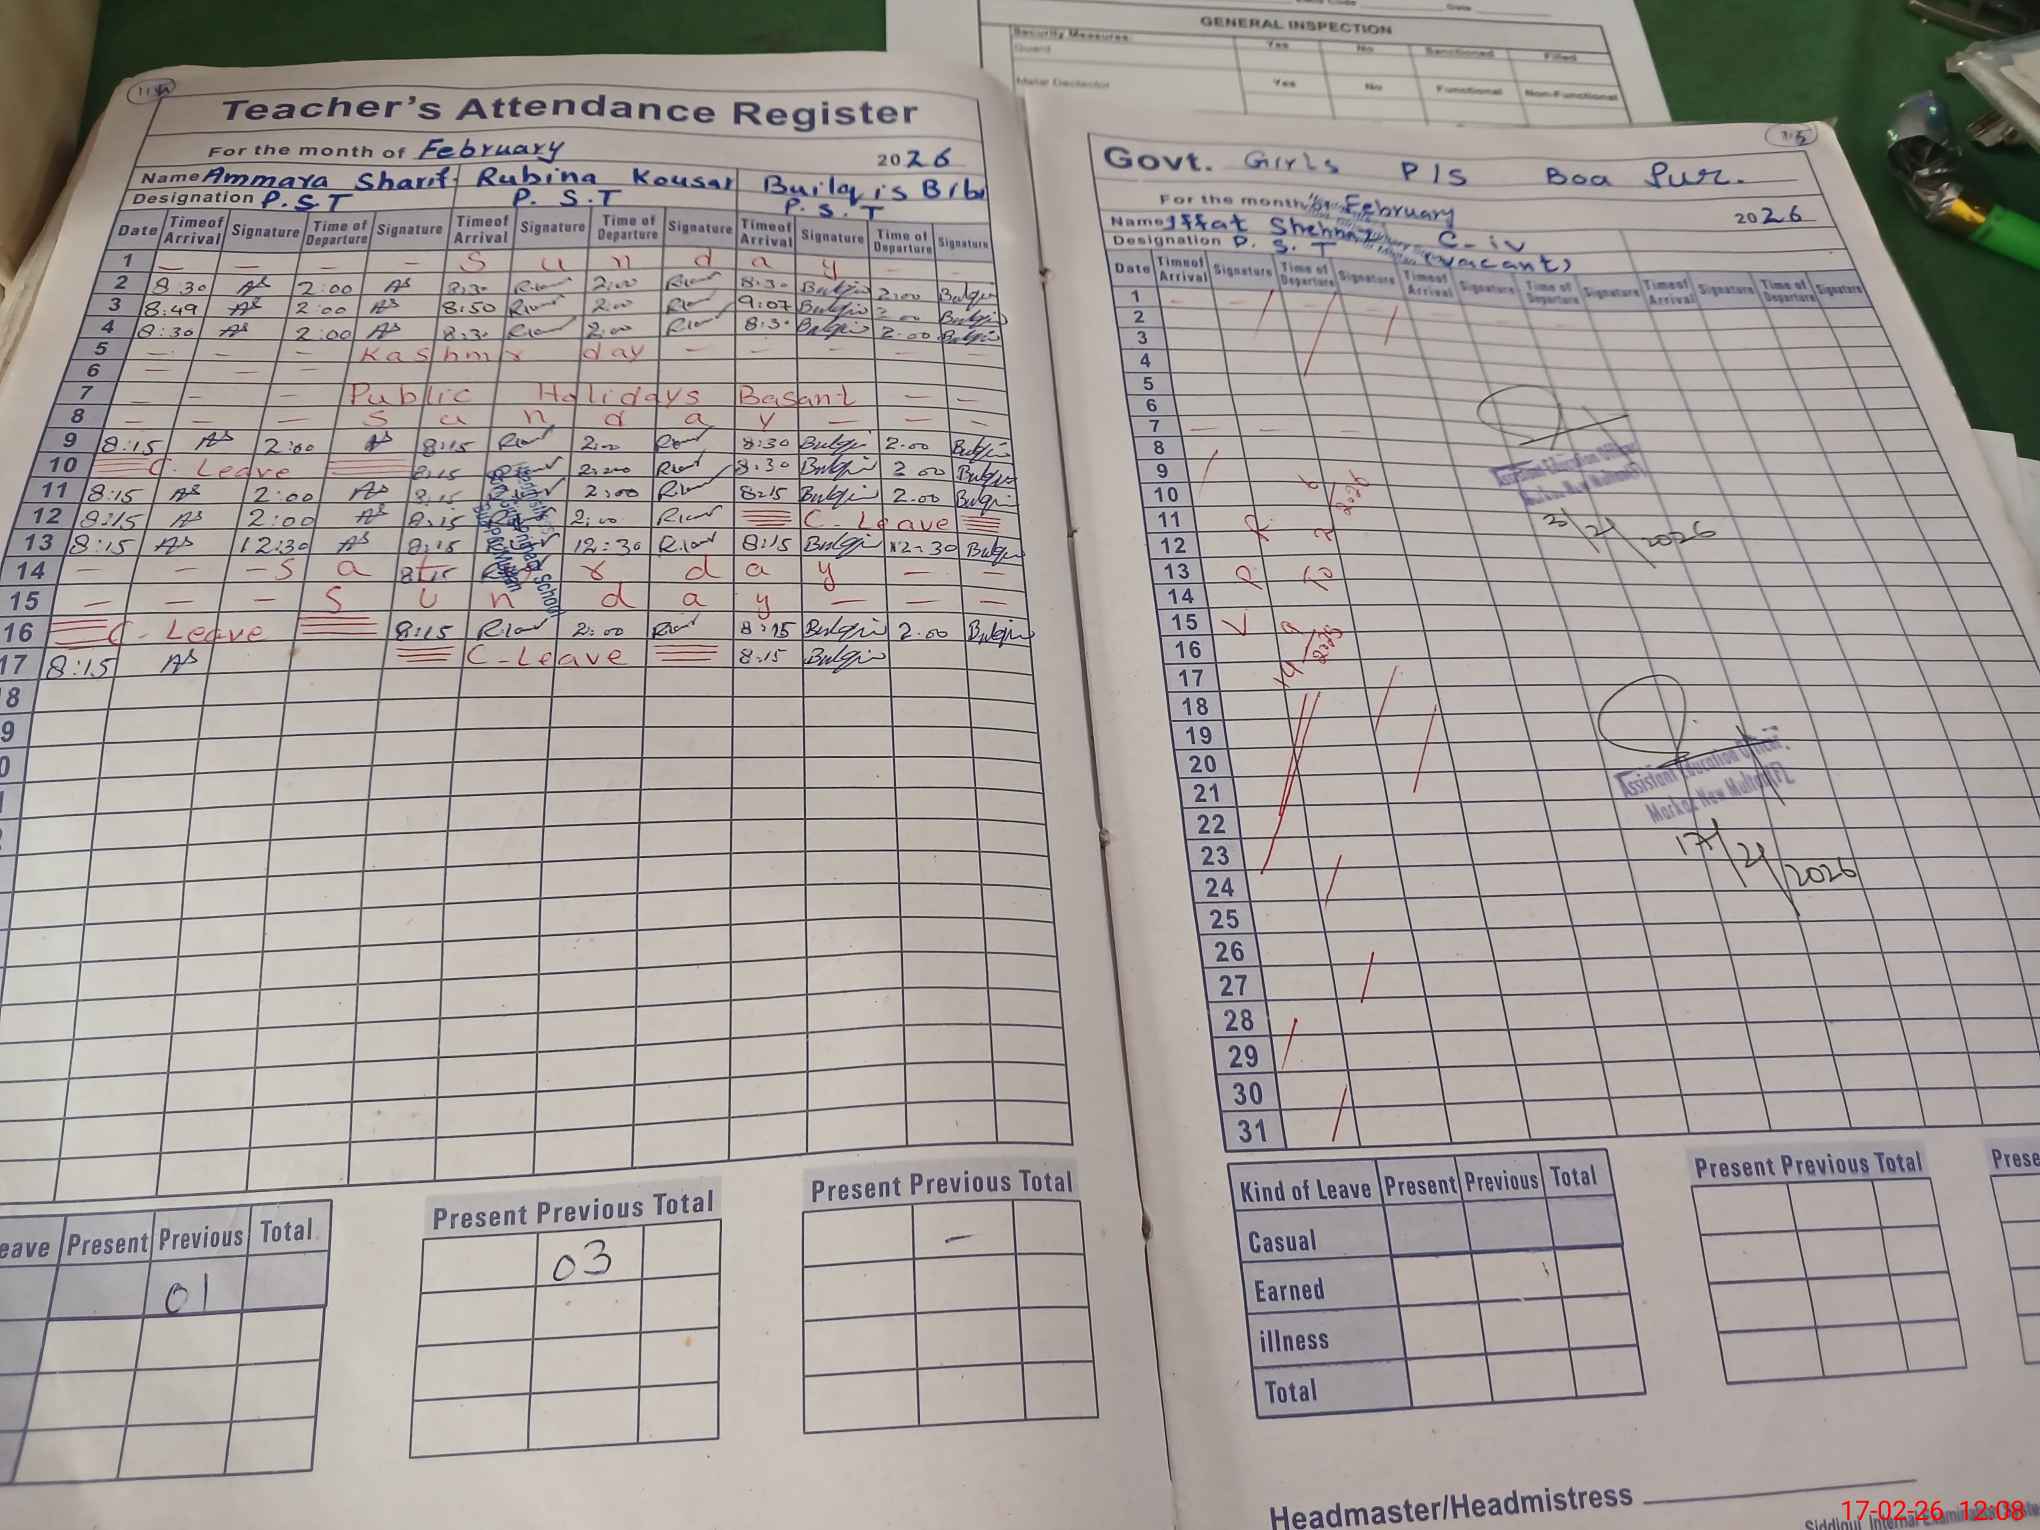 GENERAL INSPECTION
Security Measures: Yes No Sanctioned Filled
Guard
Metal Dectector Yes No Functional Non-Functional
Teacher's Attendance Register
For the month of February 2026
Name Ammara Sharif Rubina Kousar Builqis Bibi
Designation P.S.T P.S.T P.S.T
Date Timeof Arrival Signature Time of Departure Signature Timeof Arrival Signature Time of Departure Signature Timeof Arrival Signature Time of Departure Signature
1 — — — — S u n d a y — —
2 8:30 AS 2:00 AS 8:30 2:00 8:30 2:00
3 8:49 AS 2:00 AS 8:50 2:00 9:07 2:00
4 8:30 AS 2:00 AS 8:30 2:00 8:30 2:00
5 — — — Kashmir day — — — — —
6 — — —
7 — — — Public Holidays Basant — —
8 — — — S u n d a y — — —
9 8:15 AS 2:00 AS 8:15 2:00 8:30 2:00
10 C. Leave 8:15 2:00 8:30 2 00
11 8:15 AS 2:00 AS 8:15 2:00 8:15 2.00
12 8:15 AS 2:00 AS 8:15 2:00 C-Leave
13 8:15 AS 12:30 AS 8:15 12:30 8:15 12:30
14 — — — S a t u r d a y — — —
15 — — — S u n d a y — — —
16 C-Leave 8:15 2:00 8:15 2.00
17 8:15 AS C-Leave 8:15
eave Present Previous Total
01
Present Previous Total
03
Present Previous Total
—
Govt. Girls P/S Boa Pur.
For the month of February 2026
Name Iffat Shehnaz C-iv
Designation P.S.T (vacant)
Date Timeof Arrival Signature Time of Departure Signature Timeof Arrival Signature Time of Departure Signature Timeof Arrival Signature Time of Departure Signature
1
2
3
4
5
6
7
8
9
10
11
12
13
14
15
16
17
18
19
20
21
22
23
24
25
26
27
28
29
30
31
3/2/2026
Assistant Education Officer
Markaz New Multan(F)
17/2/2026
Kind of Leave Present Previous Total
Casual
Earned
illness
Total
Present Previous Total
Prese
Headmaster/Headmistress
17-02-26 12:08